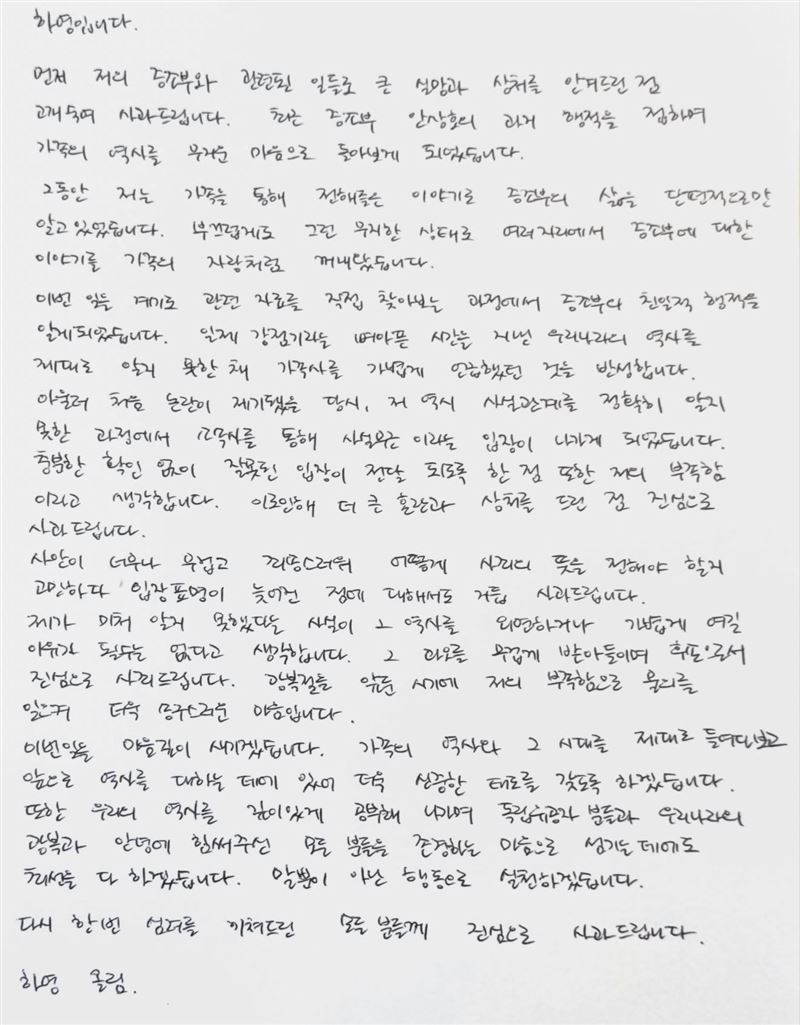 하영입니다.
먼저 저의 증조부와 관련된 일들로 큰 실망과 상처를 안겨드린 점
고개 숙여 사과드립니다. 최근 증조부 안상호의 과거 행적을 접하며
가족의 역사를 무거운 마음으로 돌아보게 되었습니다.
그동안 저는 가족을 통해 전해들은 이야기로 증조부의 삶을 단편적으로만
알고 있었습니다. 부끄럽게도 그런 무지한 상태로 여러 자리에서 증조부에 대한
이야기를 가족의 자랑처럼 꺼내왔습니다.
이번 일을 계기로 관련 자료를 직접 찾아보는 과정에서 증조부의 친일적 행적을
알게 되었습니다. 일제 강점기라는 뼈아픈 시간을 지낸 우리나라의 역사를
제대로 알지 못한 채 가족사를 가볍게 언급했던 것을 반성합니다.
아울러 처음 논란이 제기됐을 당시, 저 역시 사실관계를 정확히 알지
못한 과정에서 소속사를 통해 사실무근이라는 입장이 나가게 되었습니다.
충분한 확인 없이 잘못된 입장이 전달 되도록 한 점 또한 저의 부족함
이라고 생각합니다. 이로인해 더 큰 혼란과 상처를 드린 점 진심으로
사과드립니다.
사안이 너무나 무겁고 죄송스러워 어떻게 사죄의 뜻을 전해야 할지
고민하다 입장표명이 늦어진 점에 대해서도 거듭 사과드립니다.
제가 미처 알지 못했다는 사실이 그 역사를 외면하거나 가볍게 여길
이유가 될수는 없다고 생각합니다. 그 과오를 무겁게 받아들이며 후손으로서
진심으로 사죄드립니다. 광복절을 앞둔 시기에 저의 부족함으로 물의를
일으켜 더욱 송구스러운 마음입니다.
이번일을 마음깊이 새기겠습니다. 가족의 역사와 그 시대를 제대로 들여다보고
앞으로 역사를 대하는 데에 있어 더욱 신중한 태도를 갖도록 하겠습니다.
또한 우리의 역사를 깊이있게 공부해 나가며 독립유공자 분들과 우리나라의
광복과 안녕에 힘써주신 모든 분들을 존경하는 마음으로 섬기는 데에도
최선을 다 하겠습니다. 말뿐이 아닌 행동으로 실천하겠습니다.
다시 한번 심려를 끼쳐드린 모든 분들께 진심으로 사과드립니다.
하영 올림.